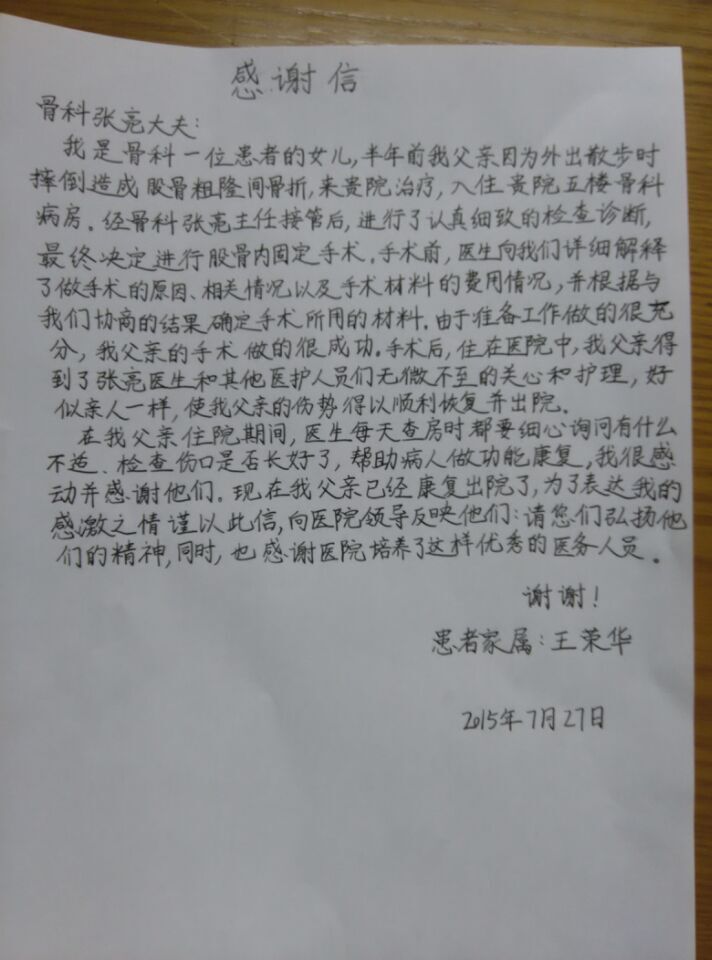 感谢信
骨科张亮大夫:
我是骨科一位患者的女儿,半年前我父亲因为外出散步时
摔倒造成股骨粗隆间骨折,来贵院治疗,入住贵院五楼骨科
病房。经骨科张亮主任接管后,进行了认真细致的检查诊断,
最终决定进行股骨内固定手术。手术前,医生向我们详细解释
了做手术的原因、相关情况以及手术材料的费用情况,并根据与
我们协商的结果确定手术所用的材料.由于准备工作做的很充
分,我父亲的手术做的很成功.手术后,住在医院中,我父亲得
到了张亮医生和其他医护人员们无微不至的关心和护理,好
似亲人一样,使我父亲的伤势得以顺利恢复并出院。
在我父亲住院期间,医生每天查房时都要细心询问有什么
不适、检查伤口是否长好了,帮助病人做功能康复,我很感
动并感谢他们。现在我父亲已经康复出院了,为了表达我的
感激之情谨以此信,向医院领导反映他们:请您们弘扬他
们的精神,同时,也感谢医院培养了这样优秀的医务人员。
谢谢!
患者家属:王荣华
2015年7月27日